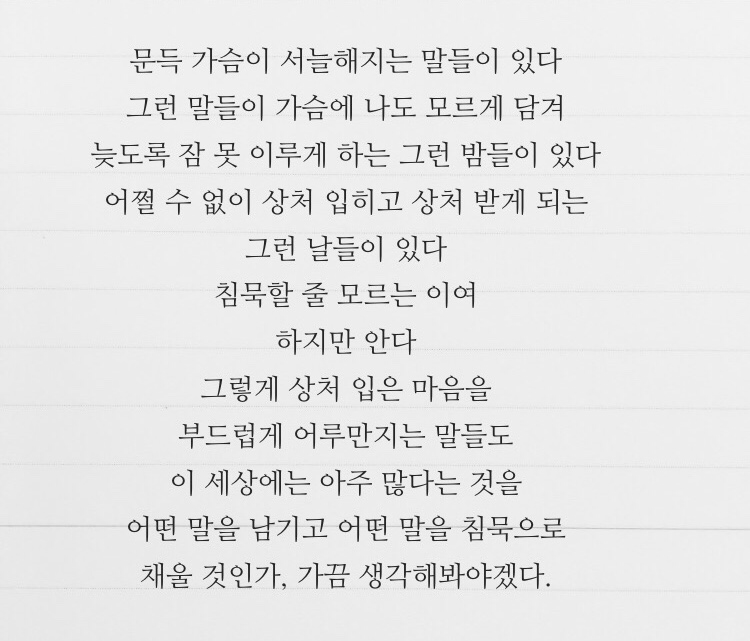 문득 가슴이 서늘해지는 말들이 있다
그런 말들이 가슴에 나도 모르게 담겨
늦도록 잠 못 이루게 하는 그런 밤들이 있다
어쩔 수 없이 상처 입히고 상처 받게 되는
그런 날들이 있다
침묵할 줄 모르는 이여
하지만 안다
그렇게 상처 입은 마음을
부드럽게 어루만지는 말들도
이 세상에는 아주 많다는 것을
어떤 말을 남기고 어떤 말을 침묵으로
채울 것인가, 가끔 생각해봐야겠다.